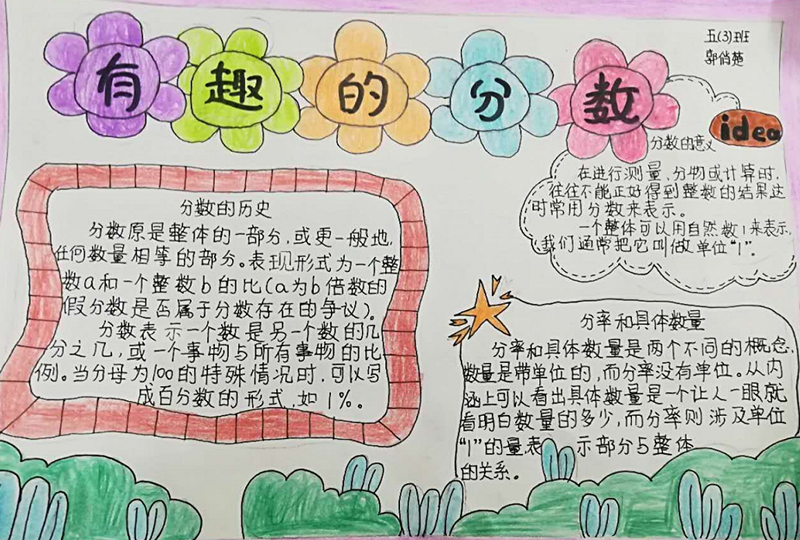 有趣的分数
五(3)班
郭俏楚
idea
分数的历史
分数原是整体的一部分,或更一般地,
任何数量相等的部分。表现形式为一个整
数a和一个整数b的比(a为b倍数的
假分数是否属于分数存在的争议)。
分数表示一个数是另一个数的几
分之几,或一个事物与所有事物的比
例。当分母为100的特殊情况时,可以写
成百分数的形式,如1%。
分数的意义
在进行测量,分物或计算时,
往往不能正好得到整数的结果达
时常用分数来表示。
一个整体可以用自然数1来表示,
我们通常把它叫做单位“1”。
分率和具体数量
分率和具体数量是两个不同的概念,
数量是带单位的,而分率没有单位。从内
涵上可以看出具体数量是一个让人一眼就
看明白数量的多少,而分率则涉及单位
“1”的量表 示部分与整体
的关系。